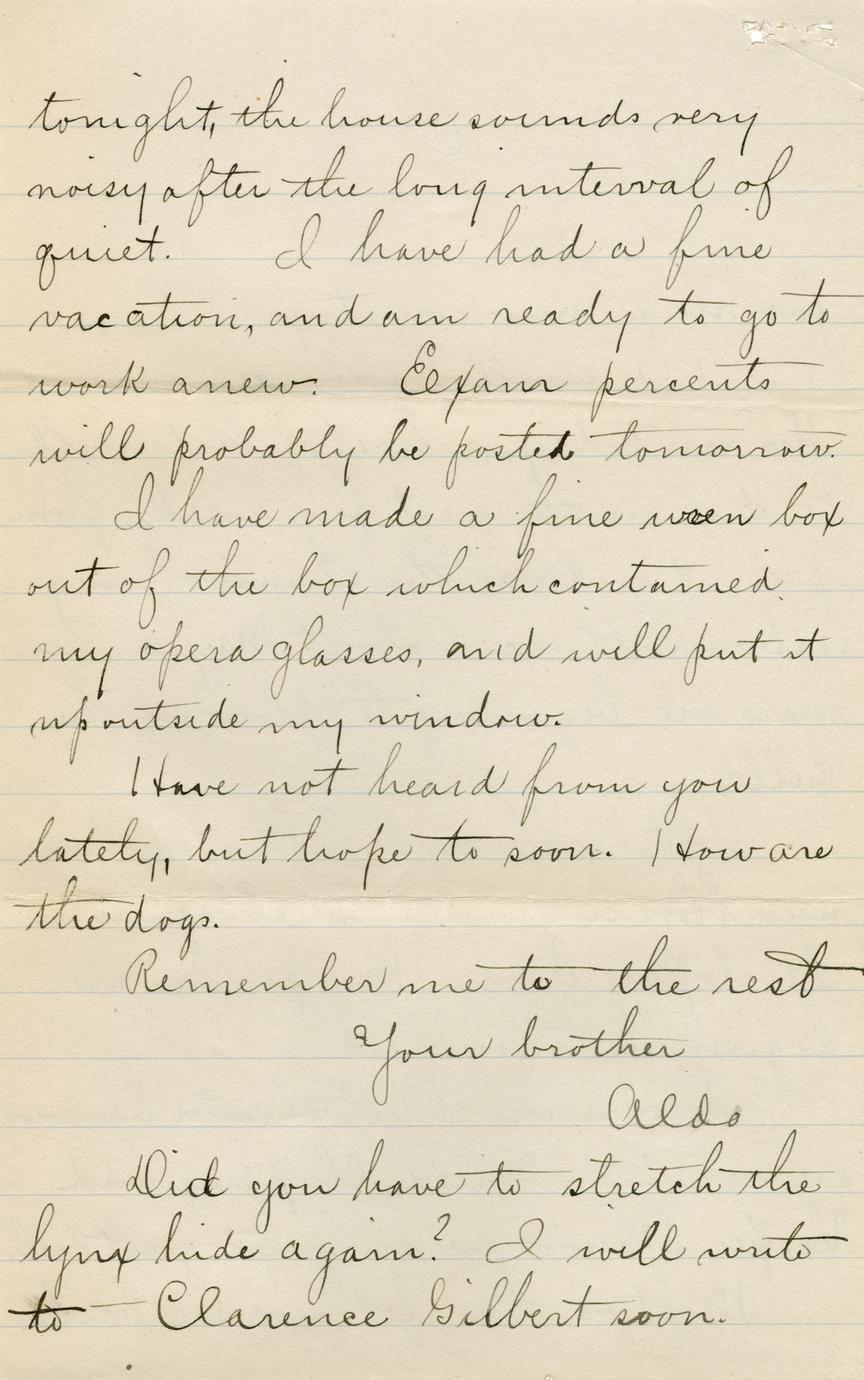 tonight, the house sounds very
noisy after the long interval of
quiet. I have had a fine
vacation, and am ready to go to
work anew. Exam percents
will probably be posted tomorrow.
I have made a fine wren box
out of the box which contained
my opera glasses, and will put it
up outside my window.
Have not heard from you
lately, but hope to soon. How are
the dogs.
Remember me to the rest
Your brother
Aldo
Did you have to stretch the
lynx hide again? I will write
to Clarence Gilbert soon.